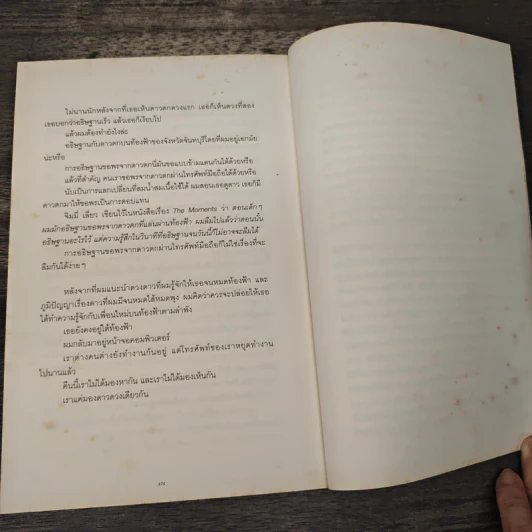 ไม่นานนักหลังจากที่เธอเห็นดาวตกดวงแรก เธอก็เห็นดวงที่สอง
เธอบอกว่าอธิษฐานเร็ว แล้วเธอก็เงียบไป
แล้วผมต้องทำยังไงล่ะ
อธิษฐานกับดาวตกบนท้องฟ้าของจังหวัดจันทบุรีโดยที่ผมอยู่เอกมัย
น่ะหรือ
การอธิษฐานขอพรจากดาวตกนี่มันขอแบบข้ามแดนกันได้ด้วยหรือ
แล้วที่สำคัญ คนเราขอพรจากดาวตกผ่านโทรศัพท์มือถือได้ด้วยหรือ
นับเป็นการแลกเปลี่ยนที่สมน้ำสมเนื้อใช้ได้ ผมสอนเธอดูดาว เธอก็มี
ดาวตกมาให้ขอพรเป็นการตอบแทน
จิมมี่ เลียว เขียนไว้ในหนังสือเรื่อง The Moments ว่า ตอนเด็กๆ
ผมมักอธิษฐานขอพรจากดาวตกที่แล่นผ่านท้องฟ้า ผมลืมไปแล้วว่าตอนนั้น
อธิษฐานอะไรไว้ แต่ความรู้สึกในวินาทีที่อธิษฐานจนวันนี้ก็ไม่อาจจะลืมได้
การอธิษฐานขอพรจากดาวตกผ่านโทรศัพท์มือถือก็ไม่ใช่เรื่องที่จะ
ลืมกันได้ง่ายๆ
หลังจากที่ผมแนะนำดวงดาวที่ผมรู้จักให้เธอจนหมดท้องฟ้า และ
ภูมิปัญญาเรื่องดาวที่ผมมีจนหมดไส้หมดพุง ผมคิดว่าควรจะปล่อยให้เธอ
ได้ทำความรู้จักกับเพื่อนใหม่บนท้องฟ้าตามลำพัง
เธอยังคงอยู่ใต้ท้องฟ้า
ผมกลับมาอยู่หน้าจอคอมพิวเตอร์
เราต่างคนต่างยังทำงานกันอยู่ แต่โทรศัพท์ของเราหยุดทำงาน
ไปนานแล้ว
คืนนี้เราไม่ได้มองหากัน และเราไม่ได้มองเห็นกัน
เราแค่มองดาวดวงเดียวกัน